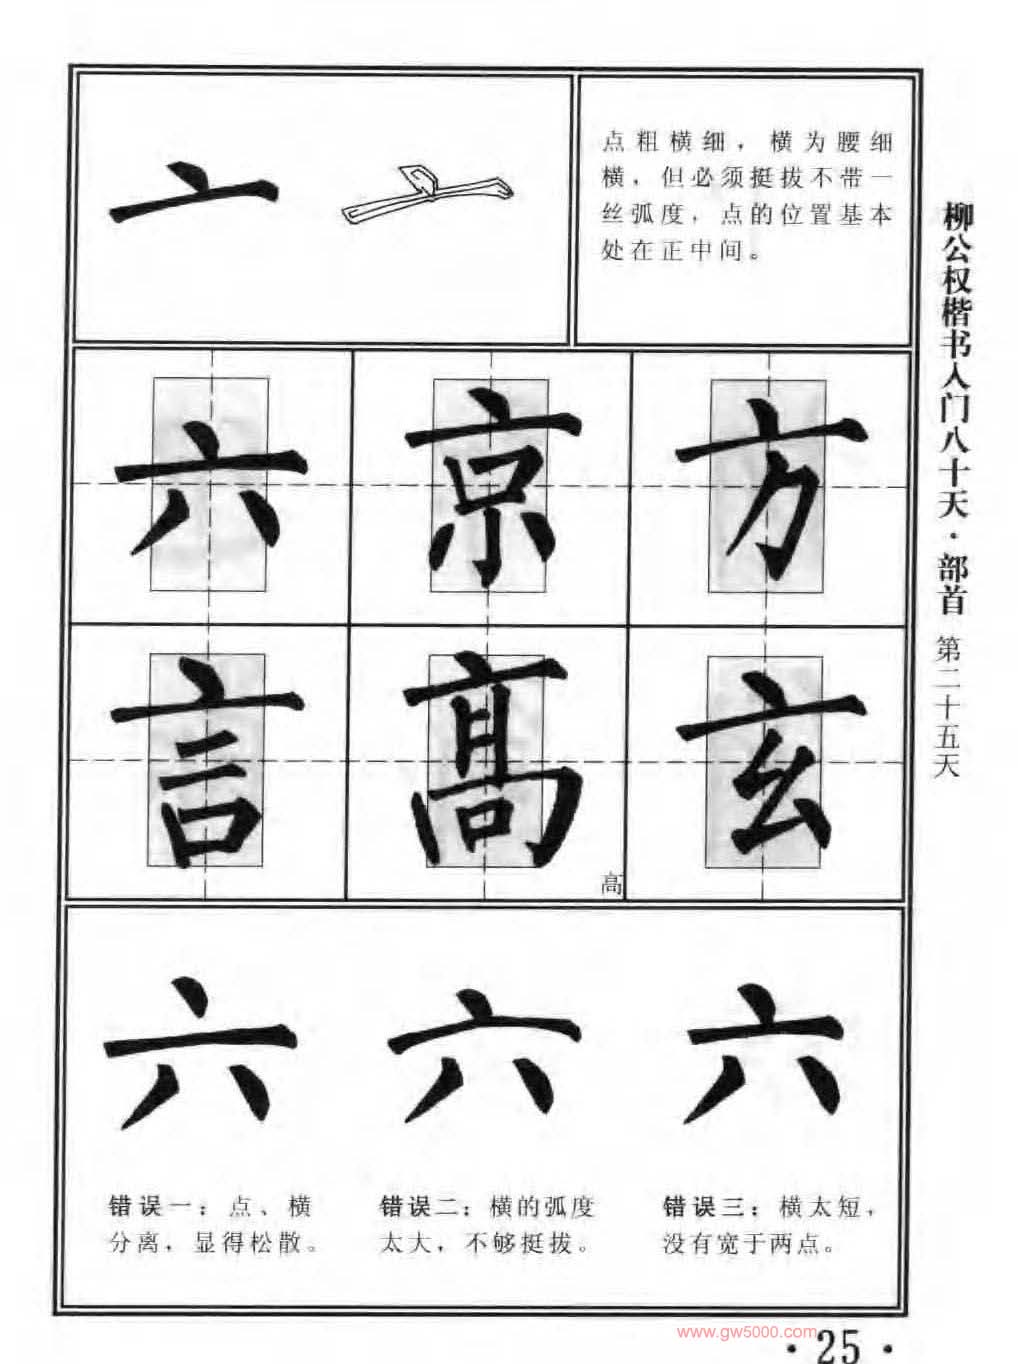 亠
点粗横细，横为腰细
横，但必须挺拔不带一
丝弧度，点的位置基本
处在正中间。
六 京 方
言 髙 玄
高
六 六 六
错误一：点、横
分离，显得松散。
错误二：横的弧度
太大，不够挺拔。
错误三：横太短，
没有宽于两点。
柳公权楷书入门八十天·部首 第二十五天
www.gw5000.com
·25·